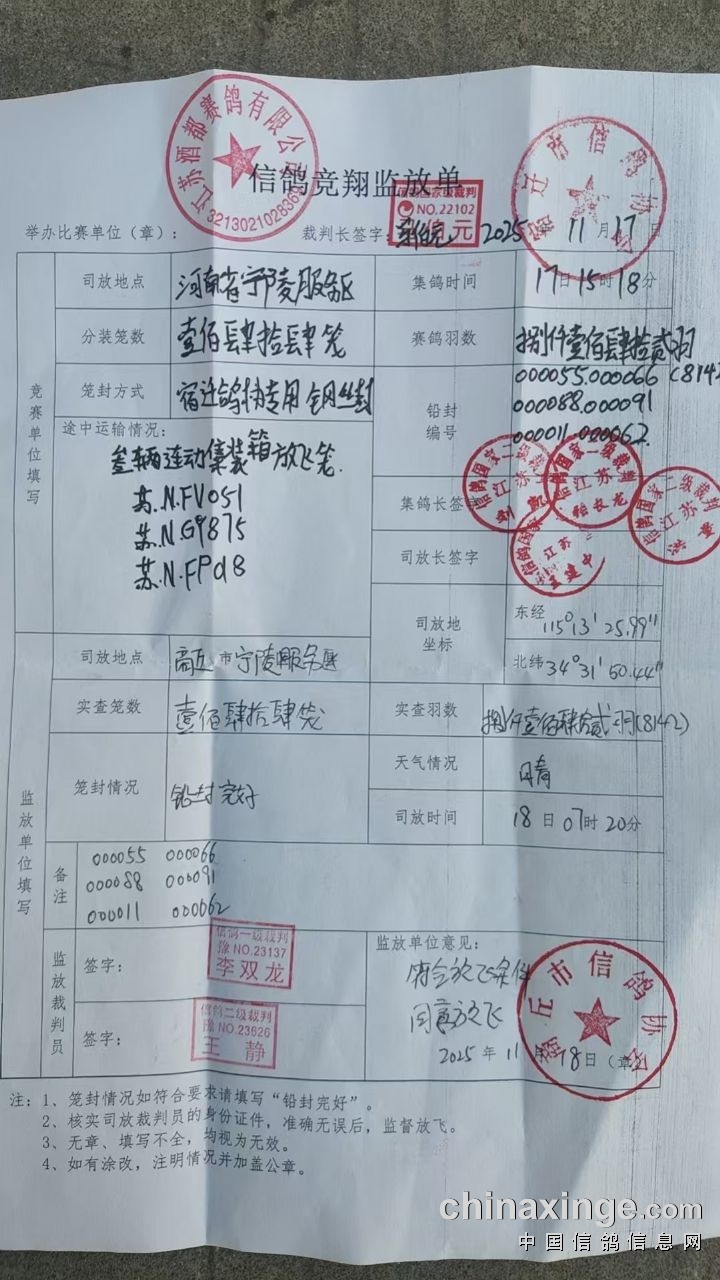 江苏酒都赛鸽有限公司
宿迁市信鸽协会
信鸽竞翔监放单
信鸽国家级裁判
NO.22102
元
举办比赛单位（章）：
裁判长签字：
2025年11月17日
竞赛单位填写
司放地点
河南省宁陵服务区
集鸽时间
17日15时18分
分装笼数
壹佰肆拾肆笼
赛鸽羽数
捌仟壹佰肆拾贰羽
(8142
笼封方式
宿迁鸽协专用钢丝封
铅封编号
000055.000066
000088.000091
000011.000062.
途中运输情况：
叁辆连动集装箱放飞笼.
苏.N.FV051
苏.N.G9875
苏.N.FPd8
集鸽长签字
信鸽国家二级裁判
江苏
信鸽国家一级裁判
江苏
信鸽国家二级裁判
江苏
司放长签字
信鸽国家
江苏
王建中
司放地坐标
东经
115°13′25.99"
北纬
34°31′50.44"
监放单位填写
司放地点
商丘市宁陵服务区
实查笼数
壹佰肆拾肆笼
实查羽数
捌仟壹佰肆拾贰羽(8142)
笼封情况
铅封完好
天气情况
晴
司放时间
18日07时20分
备注
000055 000066
000088 000091
000011 000062
监放裁判员
签字：
信鸽一级裁判
豫NO.23137
李双龙
签字：
信鸽二级裁判
豫NO.23626
王静
监放单位意见：
符合放飞条件
同意放飞
2025年11月18日（章）
商丘市信鸽协会
注：1、笼封情况如符合要求请填写“铅封完好”。
2、核实司放裁判员的身份证件，准确无误后，监督放飞。
3、无章、填写不全，均视为无效。
4、如有涂改，注明情况并加盖公章。
chinaxinge.com
中国信鸽信息网